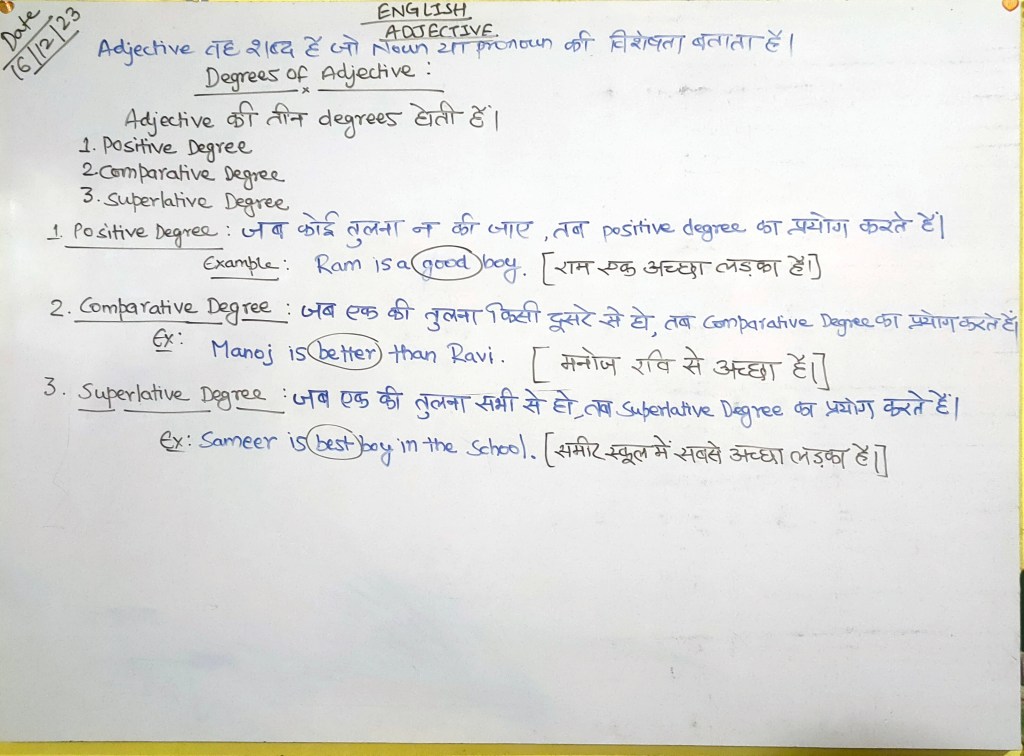 Date
16/12/23
ENGLISH
ADJECTIVE
Adjective वह शब्द हैं जो Noun या pronoun की विशेषता बताता हैं।
Degrees of Adjective :
Adjective की तीन degrees होती हैं।
1. Positive Degree
2. Comparative Degree
3. Superlative Degree
1. Positive Degree : जब कोई तुलना न की जाए, तब positive degree का प्रयोग करते हैं।
Example : Ram is a good boy. [राम एक अच्छा लड़का हैं।]
2. Comparative Degree : जब एक की तुलना किसी दूसरे से हो, तब Comparative Degree का प्रयोग करते हैं|
Ex : Manoj is better than Ravi. [मनोज रवि से अच्छा हैं।]
3. Superlative Degree : जब एक की तुलना सभी से हो, तब Superlative Degree का प्रयोग करते हैं।
Ex : Sameer is best boy in the School. [समीर स्कूल में सबसे अच्छा लड़का हैं।]